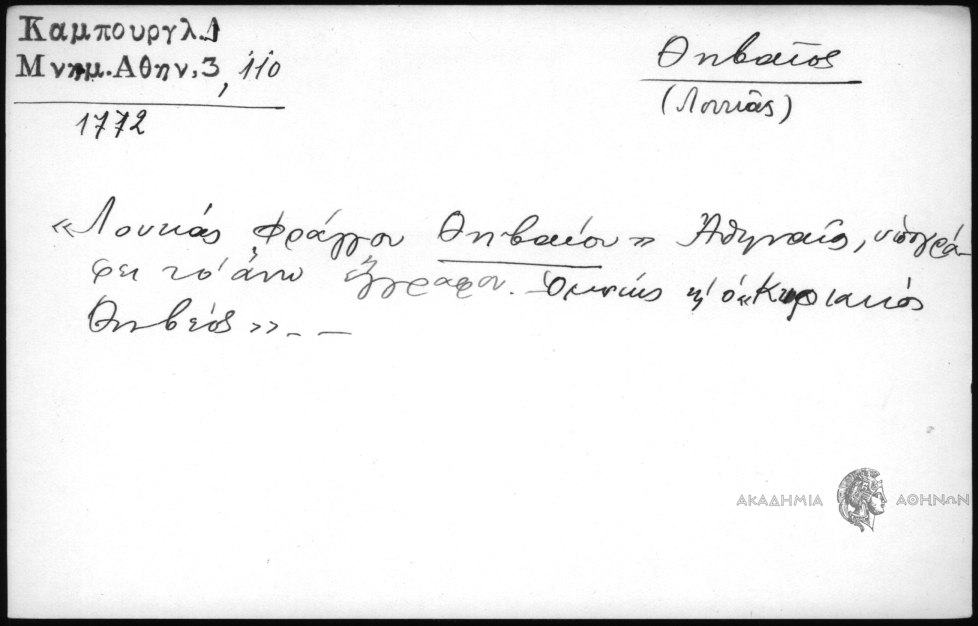 Καμπουργλ.Δ
Μνημ.Αθην.3, 110
1772
Θηβαῖος
(Λουκᾶς)
«Λουκάς Φράγγου Θηβαίου» Ἀθηναῖος, ὑπογρά-
φει τό ἄνω ἔγγραφον. Ὁμοίως κ' ὁ «Κυριακός
Θηβέος».-
ΑΚΑΔΗΜΙΑ ΑΘΗΝΩΝ